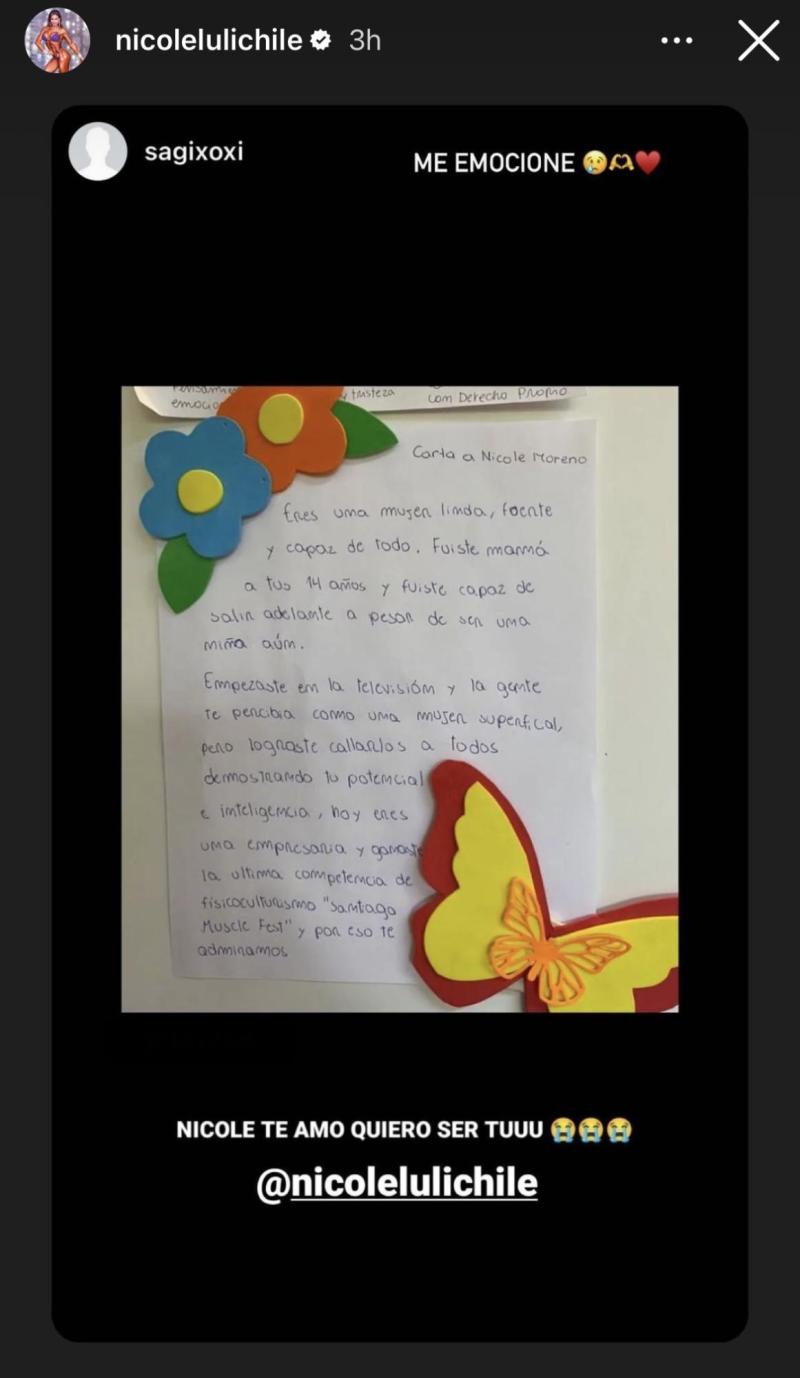 nicolelulichile 3h
sagixoxi
ME EMOCIONE 😢🫶♥️
emocio
y tristeza
com Derecho Propio
Carta a Nicole Moreno
Eres uma mujer linda, fuente
y capaz de todo. Fuiste mamá
a tus 14 años y fuiste capaz de
salir adelante a pesar de ser uma
miña aúm.
Empezaste em la televisióm y la gente
te percibia como uma mujer superfical,
pero lograste callarlos a todos
demostramdo tu potemcial
e imteligemcia, hoy eres
uma empresaria y ganaste
la ultima competemcia de
fisicoculturismo "Samtiago
Muscle Fest" y por eso te
adminamos
NICOLE TE AMO QUIERO SER TUUU 😭😭😭
@nicolelulichile